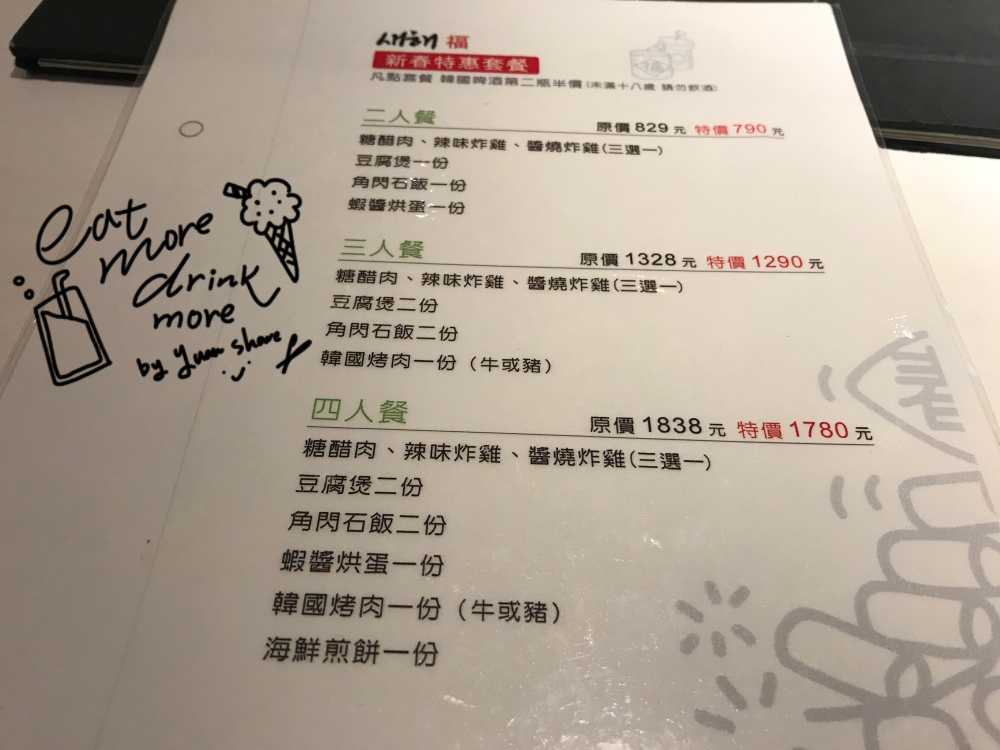 새해 福
新春特惠套餐
凡點套餐 韓國啤酒第二瓶半價(未滿十八歲 請勿飲酒)
二人餐 原價829元 特價790元
糖醋肉、辣味炸雞、醬燒炸雞(三選一)
豆腐煲一份
角閃石飯一份
蝦醬烘蛋一份
三人餐 原價1328元 特價1290元
糖醋肉、辣味炸雞、醬燒炸雞(三選一)
豆腐煲二份
角閃石飯二份
韓國烤肉一份（牛或豬）
四人餐 原價1838元 特價1780元
糖醋肉、辣味炸雞、醬燒炸雞(三選一)
豆腐煲二份
角閃石飯二份
蝦醬烘蛋一份
韓國烤肉一份（牛或豬）
海鮮煎餅一份
eat
more
drink
more
by Yuan share